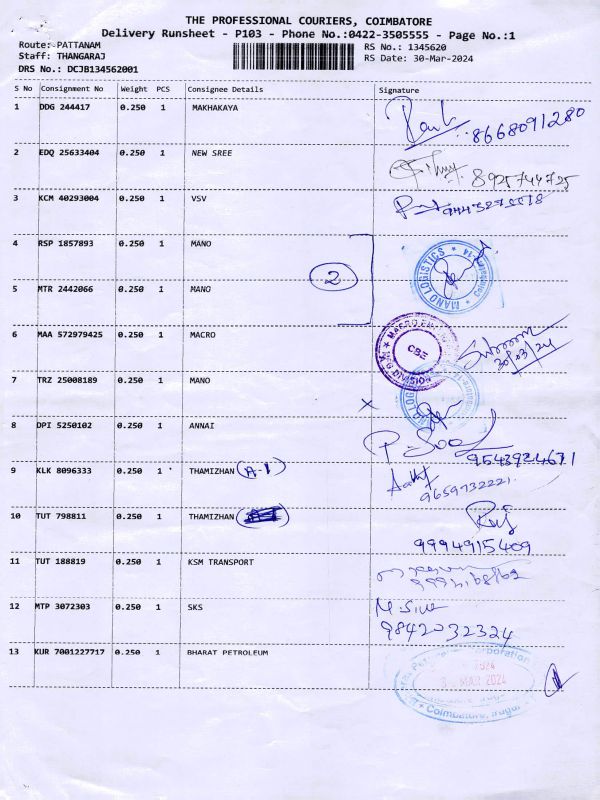 THE PROFESSIONAL COURIERS, COIMBATORE
Delivery Runsheet - P103 - Phone No.:0422-3505555 - Page No.:1
Route: PATTANAM RS No.: 1345620
Staff: THANGARAJ RS Date: 30-Mar-2024
DRS No.: DCJB134562001
S No Consignment No Weight PCS Consignee Details Signature
1 DDG 244417 0.250 1 MAKHAKAYA
8668091280
2 EDQ 25633404 0.250 1 NEW SREE
8925744725
3 KCM 40293004 0.250 1 VSV
4 RSP 1857893 0.250 1 MANO
2
MANO LOGISTICS
5 MTR 2442066 0.250 1 MANO
6 MAA 572979425 0.250 1 MACRO
CBE
30/03/24
7 TRZ 25008189 0.250 1 MANO
8 DPI 5250102 0.250 1 ANNAI
9543924671
9 KLK 8096333 0.250 1 THAMIZHAN (A-1)
9659732221
10 TUT 798811 0.250 1 THAMIZHAN
9994915409
11 TUT 188819 0.250 1 KSM TRANSPORT
12 MTP 3072303 0.250 1 SKS
M. Siva
9842032324
13 KUR 7001227717 0.250 1 BHARAT PETROLEUM
MAR 2024
Coimbatore, Irugur